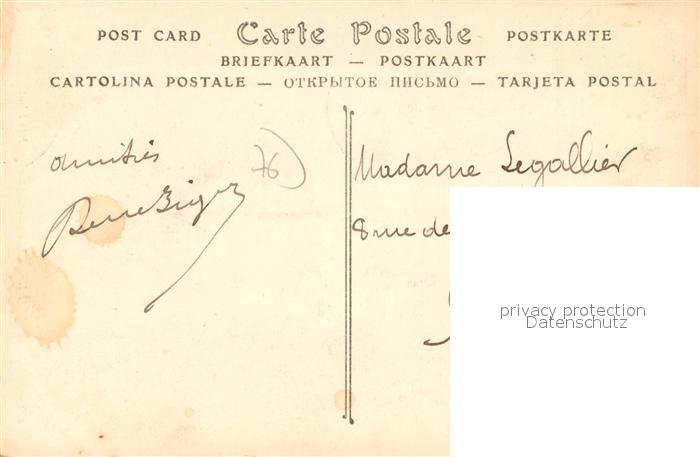 POST CARD Carte Postale POSTKARTE
BRIEFKAART — POSTKAART
CARTOLINA POSTALE — ОТКРЫТОЕ ПИСЬМО — TARJETA POSTAL
amitiés
76
Madame Legallier
8 rue de
privacy protection
Datenschutz